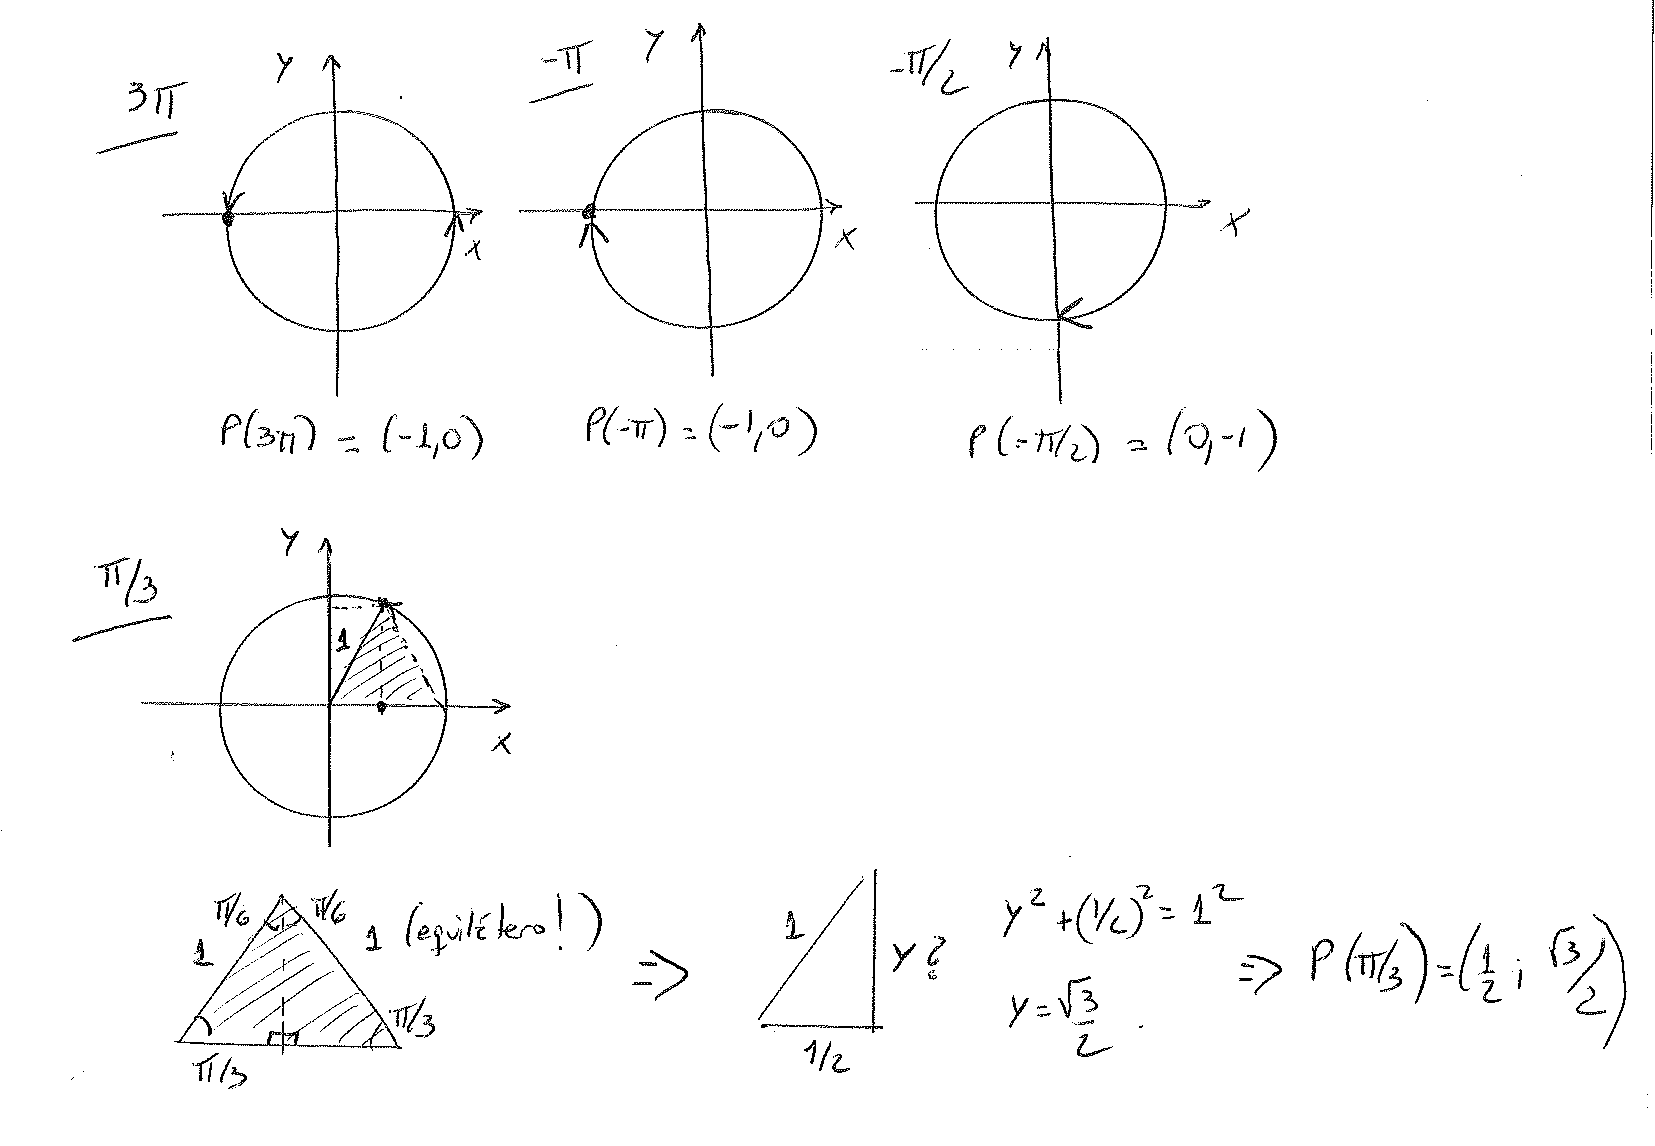 3π
Y
X
-π
Y
X
-π/2
Y
X
P(3π) = (-1,0)
P(-π) = (-1,0)
P(-π/2) = (0,-1)
π/3
Y
1
X
π/6 π/6
1
1 (equilátero!)
π/3
π/3
⇒
1
Y?
1/2
Y² + (1/2)² = 1²
Y = √3/2 .
⇒ P(π/3) = (1/2 ; √3/2)